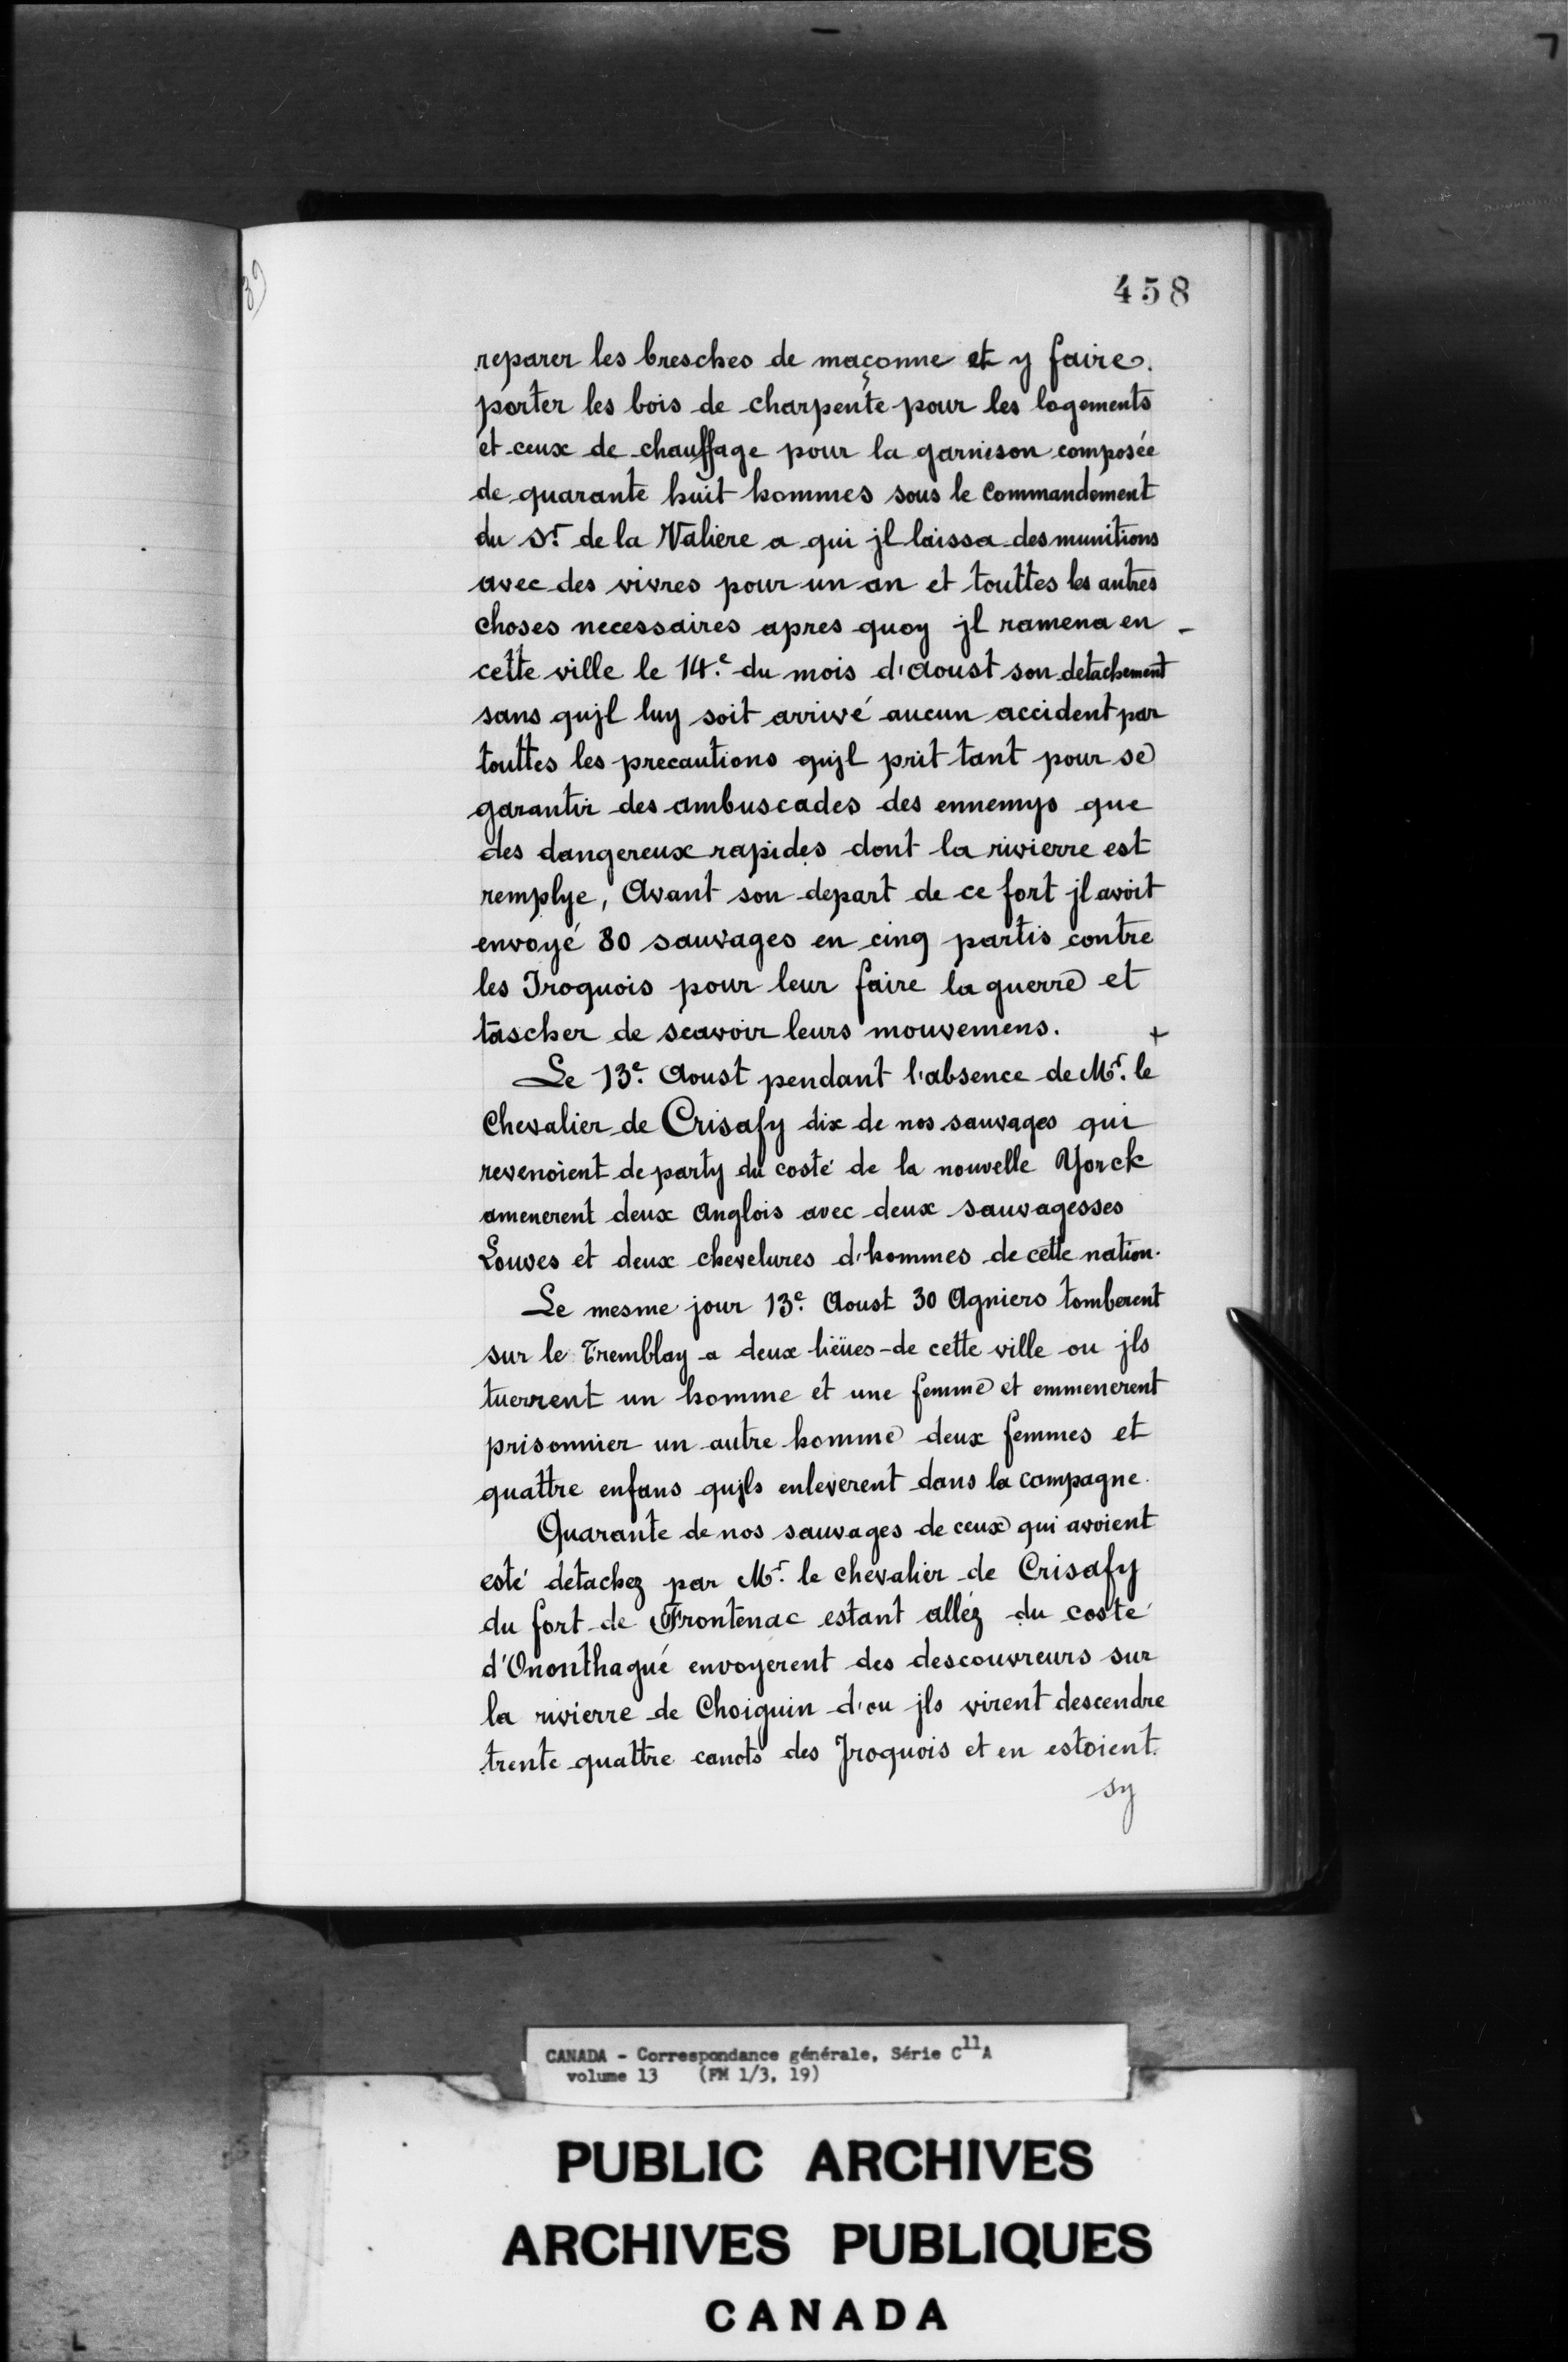 458
reparer les bresches de maçonne et y faire
porter les bois de charpente pour les logements
et ceux de chauffage pour la garnison composée
de quarante huit hommes sous le Commandement
du Sr. de la Valiere a qui jl laissa des munitions
avec des vivres pour un an et touttes les autres
choses necessaires apres quoy jl ramena en -
cette ville le 14e. du mois d'Aoust son detachement
sans qujl luy soit arrivé aucun accident par
touttes les precautions qujl prit tant pour se
garantir des ambuscades des ennemys que
des dangereux rapides dont la rivierre est
remplye, Avant son depart de ce fort jl avoit
envoyé 80 sauvages en cinq partis contre
les Iroquois pour leur faire la guerre et
tascher de scavoir leurs mouvemens. +
Le 13e. Aoust pendant l'absence de Mr. le
Chevalier de Crisafy dix de nos sauvages qui
revenoient de party du costé de la nouvelle Yorck
amenerent deux Anglois avec deux sauvagesses
Louves et deux chevelures d'hommes de cette nation.
Le mesme jour 13e. Aoust 30 Agniers tomberent
sur le Tremblay a deux liëues de cette ville ou jls
tuerrent un homme et une femme et emmenerent
prisonnier un autre homme deux femmes et
quattre enfans qujls enleverent dans la campagne.
Quarante de nos sauvages de ceux qui avoient
esté detachez par Mr. le Chevalier de Crisafy
du fort de Frontenac estant alléz du costé
d'Ononthagué envoyerent des descouvreurs sur
la rivierre de Choiguin d'ou jls virent descendre
trente quattre canots des Jroquois et en estoient
sy
CANADA - Correspondance générale, Série C11A
volume 13 (FM 1/3, 19)
PUBLIC ARCHIVES
ARCHIVES PUBLIQUES
CANADA